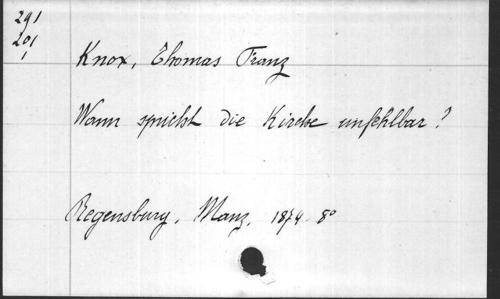 291
201
1
Knox, Thomas Franz
Wann spricht die Kirche unfehlbar?
Regensburg, Manz, 1874 8°